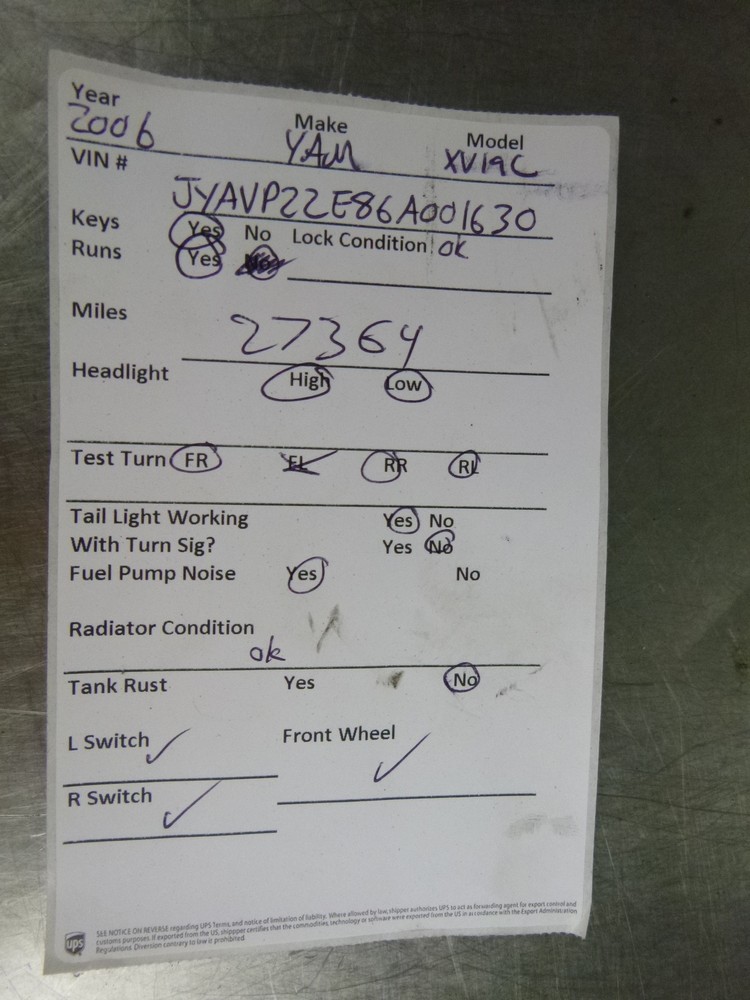 Year Make Model
2006 YAM XV19C
VIN #
JYAVP22E86A001630
Keys Yes No Lock Condition ok
Runs Yes No
Miles
27364
Headlight High Low
Test Turn FR FL RR RL
Tail Light Working Yes No
With Turn Sig? Yes No
Fuel Pump Noise Yes No
Radiator Condition
ok
Tank Rust Yes No
L Switch Front Wheel
R Switch
ups
SEE NOTICE ON REVERSE regarding UPS Terms, and notice of limitation of liability. Where allowed by law, shipper authorizes UPS to act as forwarding agent for export control and
customs purposes. If exported from the US, shipper certifies that the commodities, technology or software were exported from the US in accordance with the Export Administration
Regulations. Diversion contrary to law is prohibited.